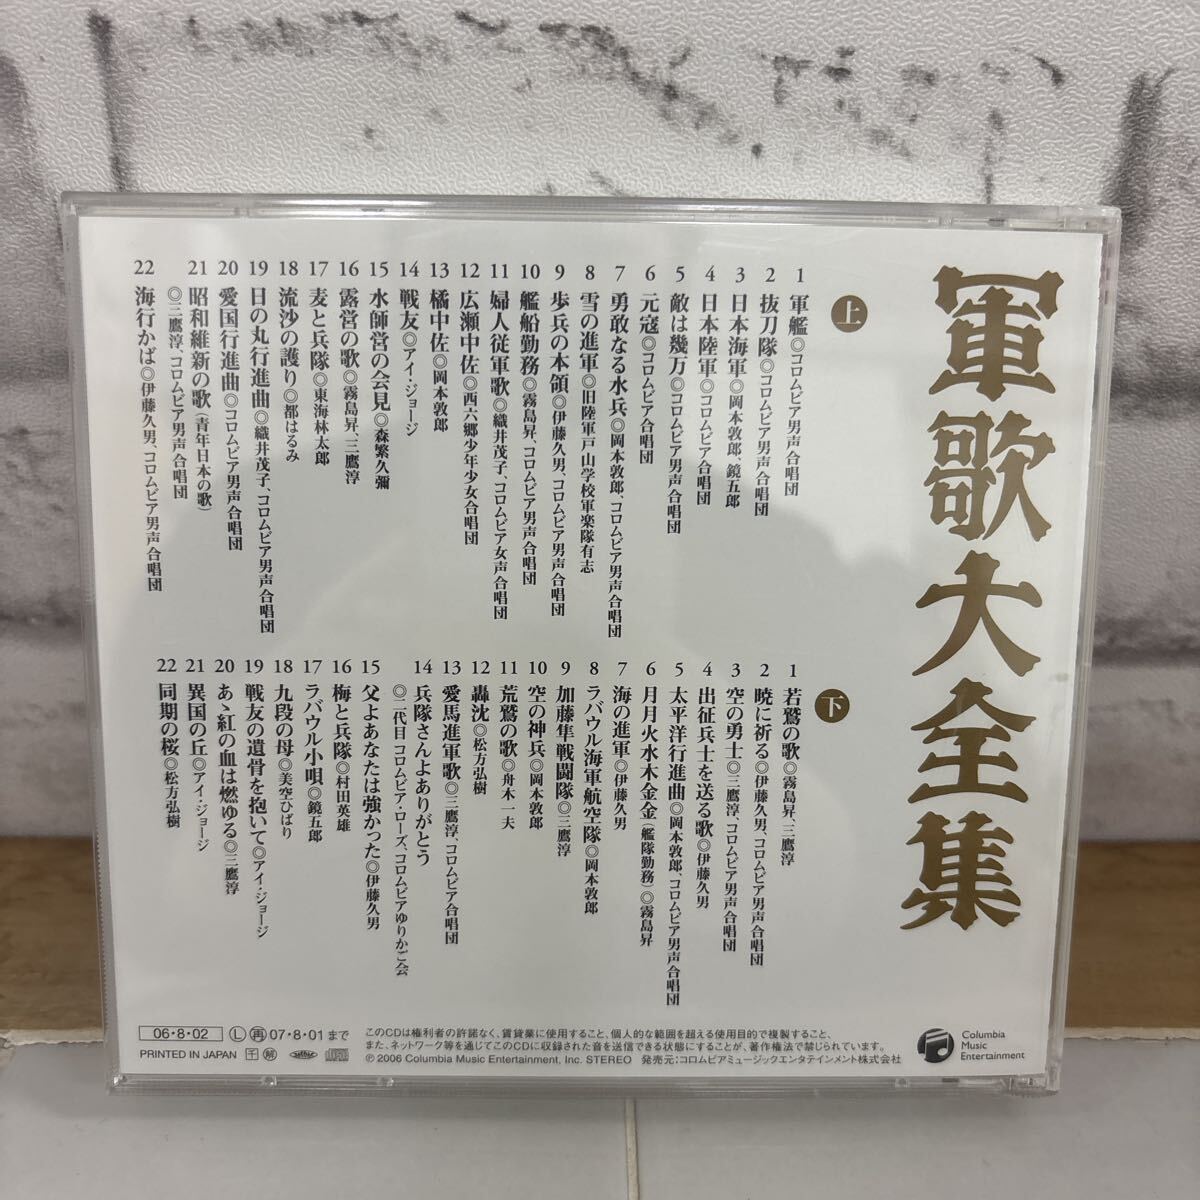 軍歌大全集
上
1 軍艦◎コロムビア男声合唱団
2 抜刀隊◎コロムビア男声合唱団
3 日本海軍◎岡本敦郎、鏡五郎
4 日本陸軍◎コロムビア合唱団
5 敵は幾万◎コロムビア男声合唱団
6 元寇◎コロムビア合唱団
7 勇敢なる水兵◎岡本敦郎、コロムビア男声合唱団
8 雪の進軍◎旧陸軍戸山学校軍楽隊有志
9 歩兵の本領◎伊藤久男、コロムビア男声合唱団
10 艦船勤務◎霧島昇、コロムビア男声合唱団
11 婦人従軍歌◎織井茂子、コロムビア女声合唱団
12 広瀬中佐◎西六郷少年少女合唱団
13 橘中佐◎岡本敦郎
14 戦友◎アイ・ジョージ
15 水師営の会見◎森繁久彌
16 露営の歌◎霧島昇、三鷹淳
17 麦と兵隊◎東海林太郎
18 流沙の護り◎都はるみ
19 日の丸行進曲◎織井茂子、コロムビア男声合唱団
20 愛国行進曲◎コロムビア男声合唱団
21 昭和維新の歌（青年日本の歌）
◎三鷹淳、コロムビア男声合唱団
22 海行かば◎伊藤久男、コロムビア男声合唱団
下
1 若鷲の歌◎霧島昇、三鷹淳
2 暁に祈る◎伊藤久男、コロムビア男声合唱団
3 空の勇士◎三鷹淳、コロムビア男声合唱団
4 出征兵士を送る歌◎伊藤久男
5 太平洋行進曲◎岡本敦郎、コロムビア男声合唱団
6 月月火水木金金（艦隊勤務）◎霧島昇
7 海の進軍◎伊藤久男
8 ラバウル海軍航空隊◎岡本敦郎
9 加藤隼戦闘隊◎三鷹淳
10 空の神兵◎岡本敦郎
11 荒鷲の歌◎舟木一夫
12 轟沈◎松方弘樹
13 愛馬進軍歌◎三鷹淳、コロムビア合唱団
14 兵隊さんよありがとう
◎二代目 コロムビア・ローズ、コロムビアゆりかご会
15 父よあなたは強かった◎伊藤久男
16 梅と兵隊◎村田英雄
17 ラバウル小唄◎鏡五郎
18 九段の母◎美空ひばり
19 戦友の遺骨を抱いて◎アイ・ジョージ
20 あゝ紅の血は燃ゆる◎三鷹淳
21 異国の丘◎アイ・ジョージ
22 同期の桜◎松方弘樹
06・8・02 Ⓛ 再 07・8・01まで
PRINTED IN JAPAN
このCDは権利者の許諾なく、賃貸業に使用すること、個人的な範囲を超える使用目的で複製すること、
また、ネットワーク等を通じてこのCDに収録された音を送信できる状態にすることが、著作権法で禁じられています。
℗ 2006 Columbia Music Entertainment, Inc. STEREO 発売元：コロムビアミュージックエンタテインメント株式会社
Columbia
Music
Entertainment